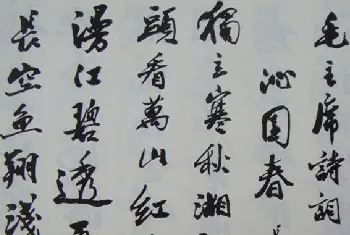 毛主席詩詞
沁园春
獨立寒秋湘
頭看萬山紅
漫江碧透
長空魚翔淺